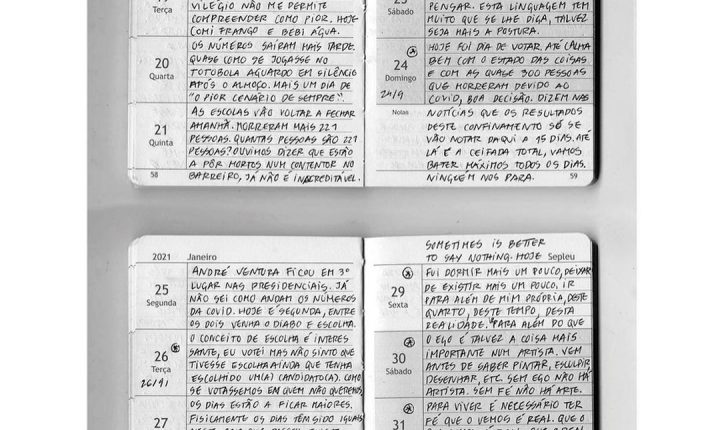 19
Terça
VILÉGIO NÃO ME PERMITE
COMPREENDER COMO PIOR. HOJE
COMI FRANGO E BEBI ÁGUA.
20
Quarta
OS NÚMEROS SAÍRAM MAIS TARDE.
QUASE COMO SE JOGASSE NO
TOTOBOLA AGUARDO EM SILÊNCIO
APÓS O ALMOÇO. MAIS UM DIA DE
"O PIOR CENÁRIO DE SEMPRE".
21
Quinta
AS ESCOLAS VÃO VOLTAR A FECHAR
AMANHÃ. MORRERAM MAIS 221
PESSOAS. QUANTAS PESSOAS SÃO 221
PESSOAS? OUVIMOS DIZER QUE ESTÃO
A PÔR MORTOS NUM CONTENTOR NO
BARREIRO, JÁ NÃO É INCREDITÁVEL.
58
23
Sábado
PENSAR. ESTA LINGUAGEM TEM
MUITO QUE SE LHE DIGA, TALVEZ
SEJA MAIS A POSTURA.
24
Domingo
24/9
HOJE FOI DIA DE VOTAR. ATÉ CALMA
BEM COM O ESTADO DAS COISAS
E COM AS QUASE 300 PESSOAS
QUE MORRERAM DEVIDO AO
COVID, BOA DECISÃO. DIZEM NAS
Notas
NOTÍCIAS QUE OS RESULTADOS
DESTE CONFINAMENTO SÓ SE
VÃO NOTAR DAQUI A 15 DIAS. ATÉ
LÁ É A CEIFADA TOTAL, VAMOS
BATER MÁXIMOS TODOS OS DIAS.
NINGUÉM NOS PARA.
59
2021 Janeiro
25
Segunda
ANDRÉ VENTURA FICOU EM 3º
LUGAR NAS PRESIDENCIAIS. JÁ
NÃO SEI COMO ANDAM OS NÚMEROS
DA COVID. HOJE É SEGUNDA, ENTRE
OS DOIS VENHA O DIABO E ESCOLHA.
26
Terça
26/91
O CONCEITO DE ESCOLHA É INTERES
SANTE, EU VOTEI MAS NÃO SINTO QUE
TIVESSE ESCOLHA AINDA QUE TENHA
ESCOLHIDO UM(A) CANDIDATO(A). COMO
SE VOTÁSSEMOS EM QUEM NÃO QUEREMOS
27
OS DIAS ESTÃO A FICAR MAIORES.
FISICAMENTE OS DIAS TÊM SIDO IGUAIS
SOMETIMES IS BETTER
TO SAY NOTHING. HOJE Sepleu
29
Sexta
FUI DORMIR MAIS UM POUCO, DEIXAR
DE EXISTIR MAIS UM POUCO, IR
PARA ALÉM DE MIM PRÓPRIA, DESTE
QUARTO, DESTE TEMPO, DESTA
REALIDADE. "PARA ALÉM DO QUE
30
Sábado
O EGO É TALVEZ A COISA MAIS
IMPORTANTE NUM ARTISTA. VEM
ANTES DE SABER PINTAR, ESCULPIR
DESENHAR, ETC. SEM EGO NÃO HÁ
ARTISTA. SEM FÉ NÃO HÁ ARTE.
31
PARA VIVER É NECESSÁRIO TER
FÉ QUE O VEMOS É REAL. QUE O